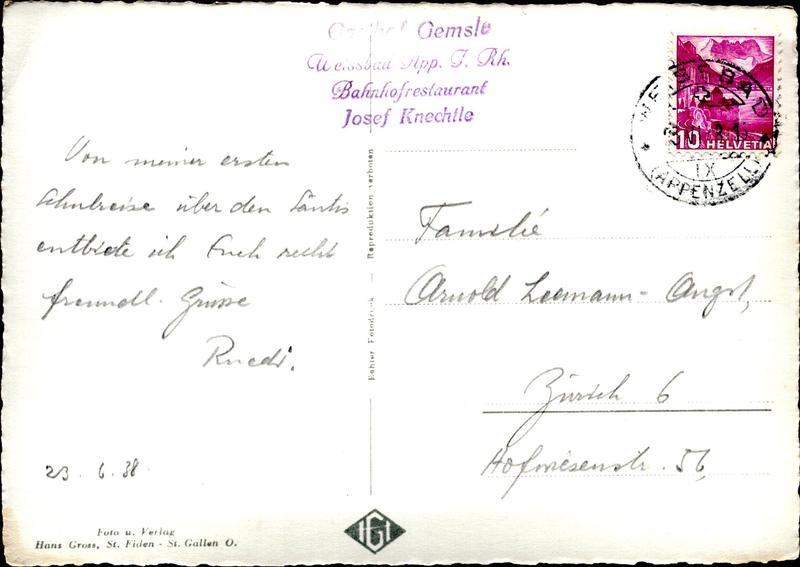 Gasthof Gemsle
Weissbad App. I. Rh.
Bahnhofrestaurant
Josef Knechtle
WEISSBAD
(APPENZELL)
IX
10 HELVETIA
Von meiner ersten
Schulreise über den Säntis
entbiete ich Euch recht
freundl. Grüsse
Ruedi.
23. 6. 38
Familie
Arnold Leemann-Angst,
Zürich 6
Hofwiesenstr. 56,
Echter Fotodruck — Reproduktion verboten
Foto u. Verlag
Hans Gross, St. Fiden - St. Gallen O.